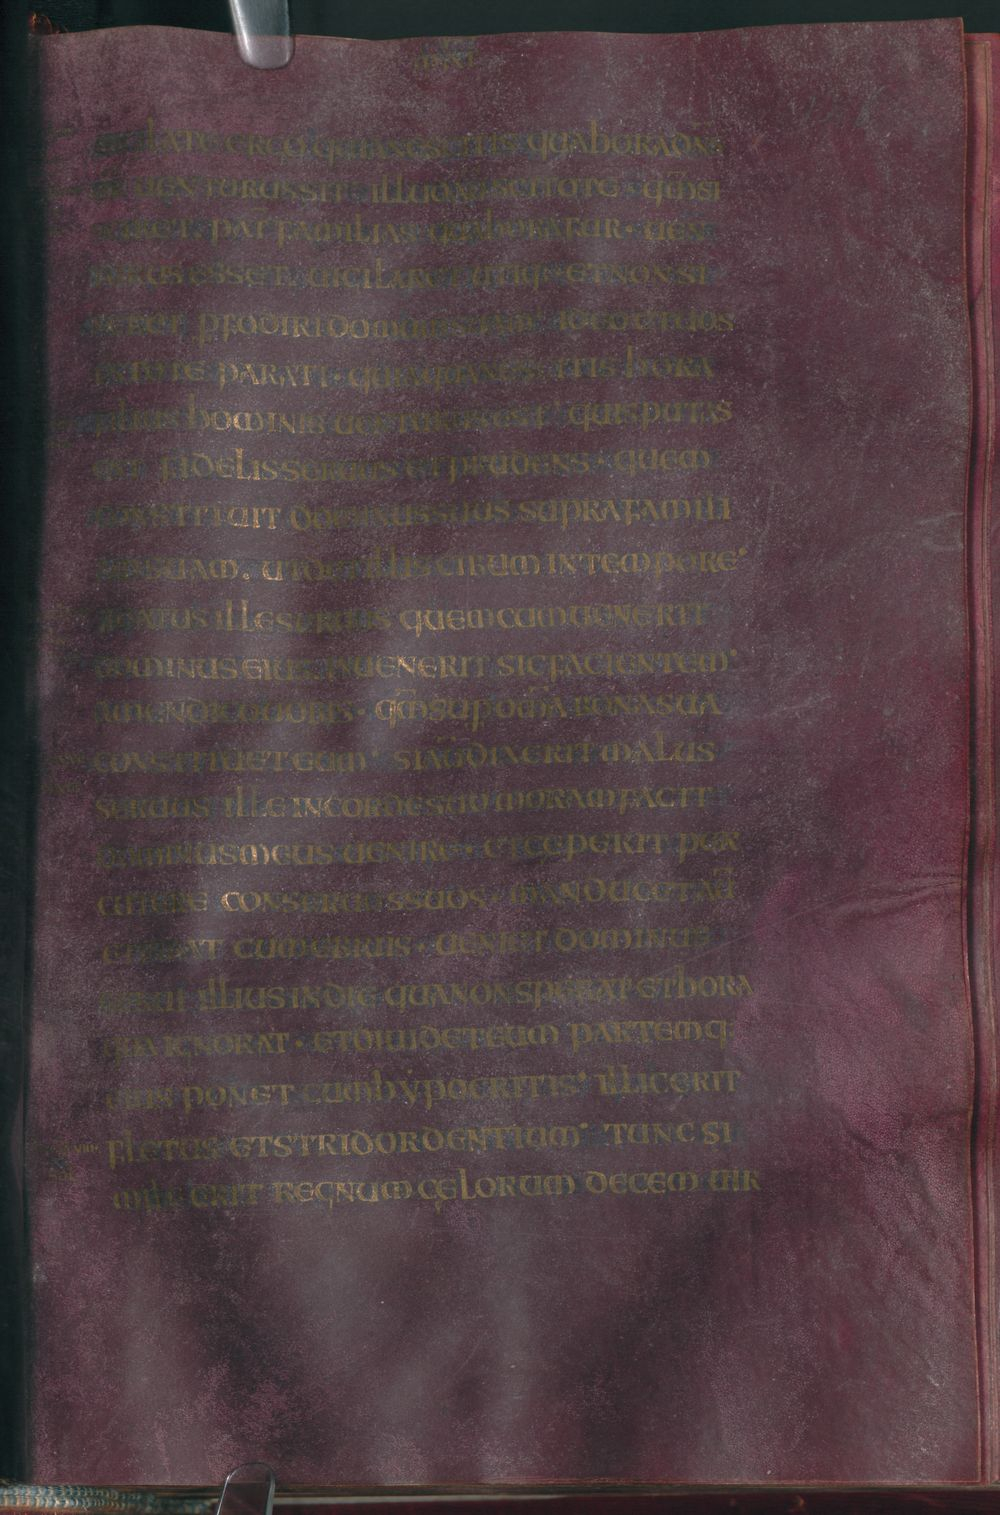 uigilate ergo quia nescitis qua hora dn̄s
ur̄ uenturus sit · illud aū scitote · qm̄ si
sciret pat familias qua hora fur · uen
turus esset · uigilaret utiq· et non si
neret pfodiri domum suam · ideo et uos
estote parati · quia qua nescitis hora
filius hominis uenturus est · quis putas
est fidelis seruus et prudens · quem
constituit dominus suus supra famili
am suam · ut det illis cibum in tempore ·
beatus ille seruus quem cum uenerit
dominus eius inuenerit sic facientem ·
amen dico uobis · qm̄ sup om̄a bona sua
constituet eum · si aū dixerit malus
seruus ille in corde suo moram facit
dominus meus uenire · et ceperit per
cutere conseruos suos · manducet aū
et bibat cum ebriis · ueniet dominus
serui illius in die qua non sperat et hora
qua ignorat · et diuidet eum partemq·
eius ponet cum hypocritis · illic erit
fletus et stridor dentium · tunc si
mile erit regnum cęlorum decem uir